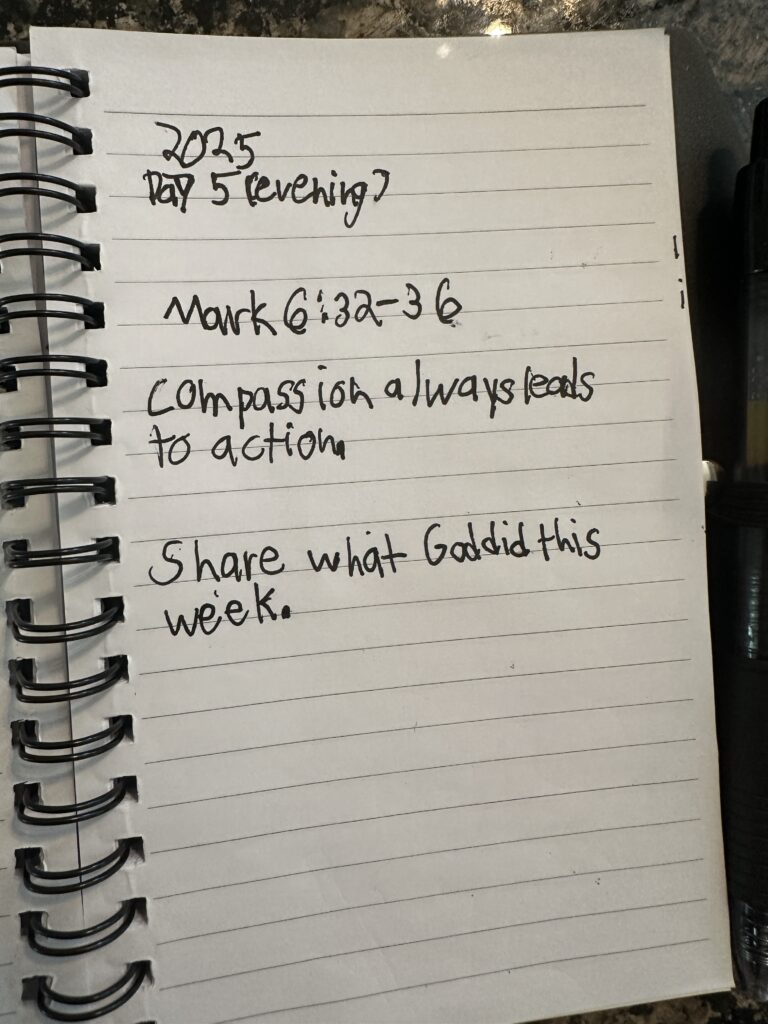 2025
Day 5 (evening)
Mark 6:32-36
compassion always leads
to action.
Share what God did this
week.